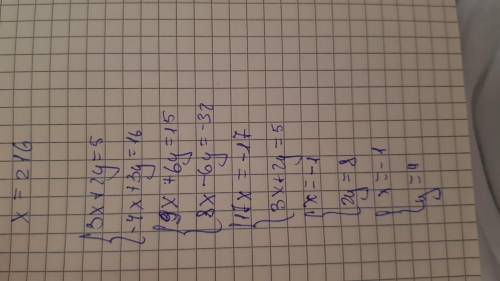 x = 216
{3x+2y=5
{-4x+3y=16
{9x+6y=15
{8x-6y=-32
{17x=-17
{3x+2y=5
{x=-1
{2y=8
{x=-1
{y=4